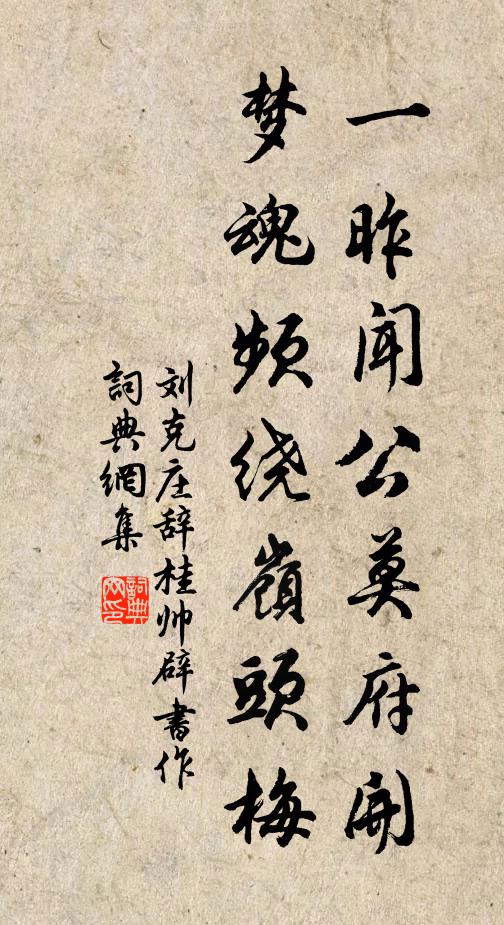 一昨闻公莫府开
梦魂频绕嶺頭梅
刘克庄辞桂帅辟書作
詞典網集
詞典网印